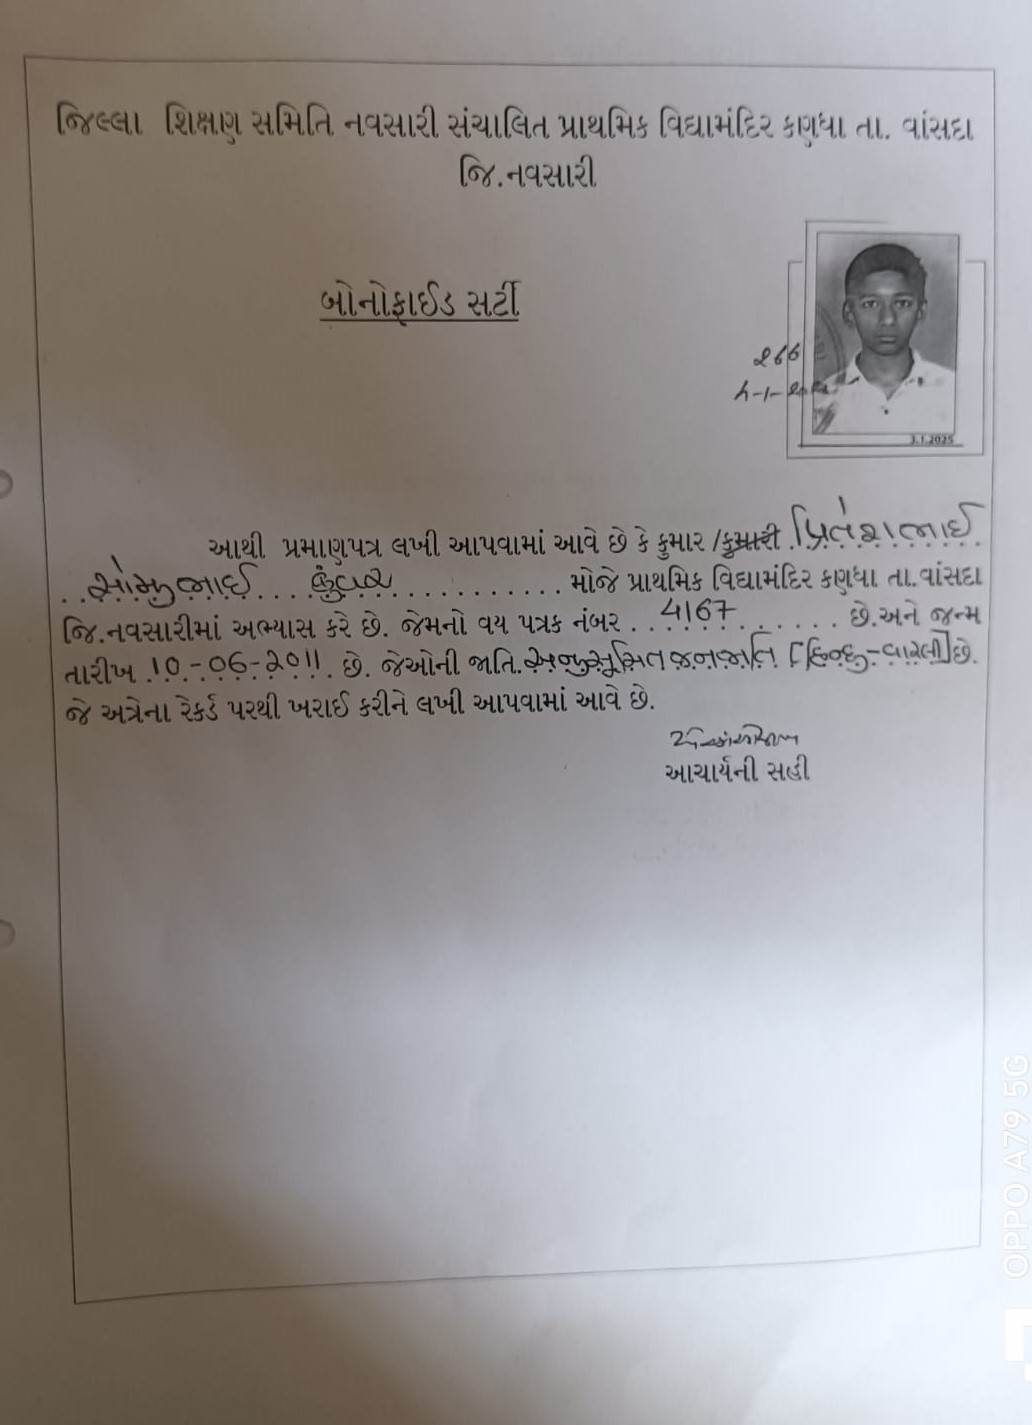 જિલ્લા શિક્ષણ સમિતિ નવસારી સંચાલિત પ્રાથમિક વિદ્યામંદિર કણધા તા. વાંસદા
જિ.નવસારી
બોનોફાઈડ સર્ટી
3.1.2025
આથી પ્રમાણપત્ર લખી આપવામાં આવે છે કે કુમાર /કુમારી પ્રિતેશભાઈ
સોમુભાઈ કુંવર મોજે પ્રાથમિક વિદ્યામંદિર કણધા તા.વાંસદા
જિ.નવસારીમાં અભ્યાસ કરે છે. જેમનો વય પત્રક નંબર 4167 છે.અને જન્મ
તારીખ 10-06-2011 છે. જેઓની જાતિ.અનુસૂચિત જનજાતિ [હિન્દુ-વારલી]છે.
જે અત્રેના રેકર્ડ પરથી ખરાઈ કરીને લખી આપવામાં આવે છે.
આચાર્યની સહી
OPPO A79 5G